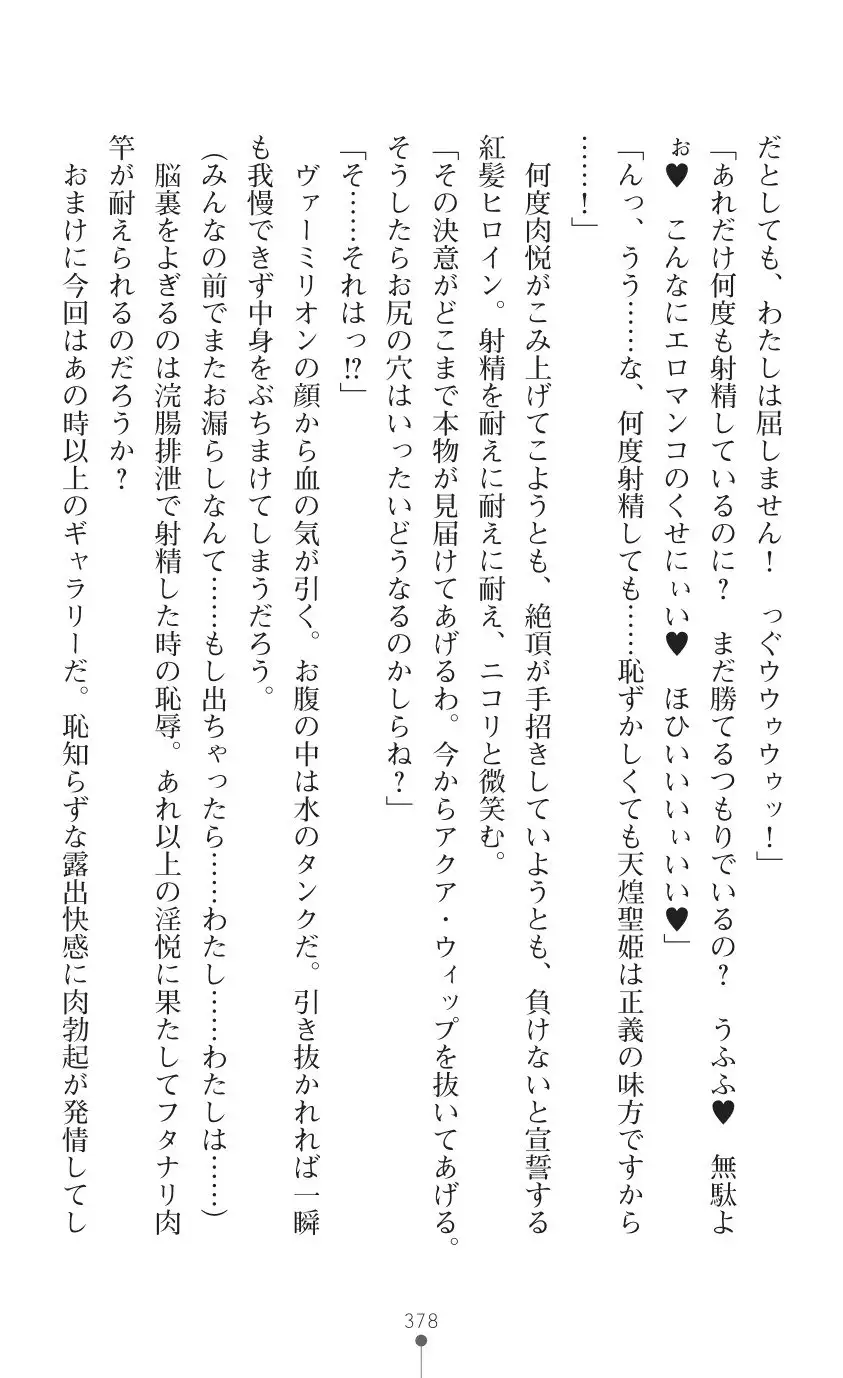 だとしても、わたしは屈しません！　っぐウウゥウゥッ！」
「あれだけ何度も射精しているのに？　まだ勝てるつもりでいるの？　うふふ♥　無駄よ
ぉ♥　こんなにエロマンコのくせにぃい♥　ほひいいいぃいい♥」
「んっ、うう……な、何度射精しても……恥ずかしくても天煌聖姫は正義の味方ですから
……！」
　何度肉悦がこみ上げてこようとも、絶頂が手招きしていようとも、負けないと宣誓する
紅髪ヒロイン。射精を耐えに耐えに耐え、ニコリと微笑む。
「その決意がどこまで本物が見届けてあげるわ。今からアクア・ウィップを抜いてあげる。
そうしたらお尻の穴はいったいどうなるのかしらね？」
「そ……それはっ!?」
　ヴァーミリオンの顔から血の気が引く。お腹の中は水のタンクだ。引き抜かれれば一瞬
も我慢できず中身をぶちまけてしまうだろう。
（みんなの前でまたお漏らしなんて……もし出ちゃったら……わたし……わたしは……）
　脳裏をよぎるのは浣腸排泄で射精した時の恥辱。あれ以上の淫悦に果たしてフタナリ肉
竿が耐えられるのだろうか？
　おまけに今回はあの時以上のギャラリーだ。恥知らずな露出快感に肉勃起が発情してし
378